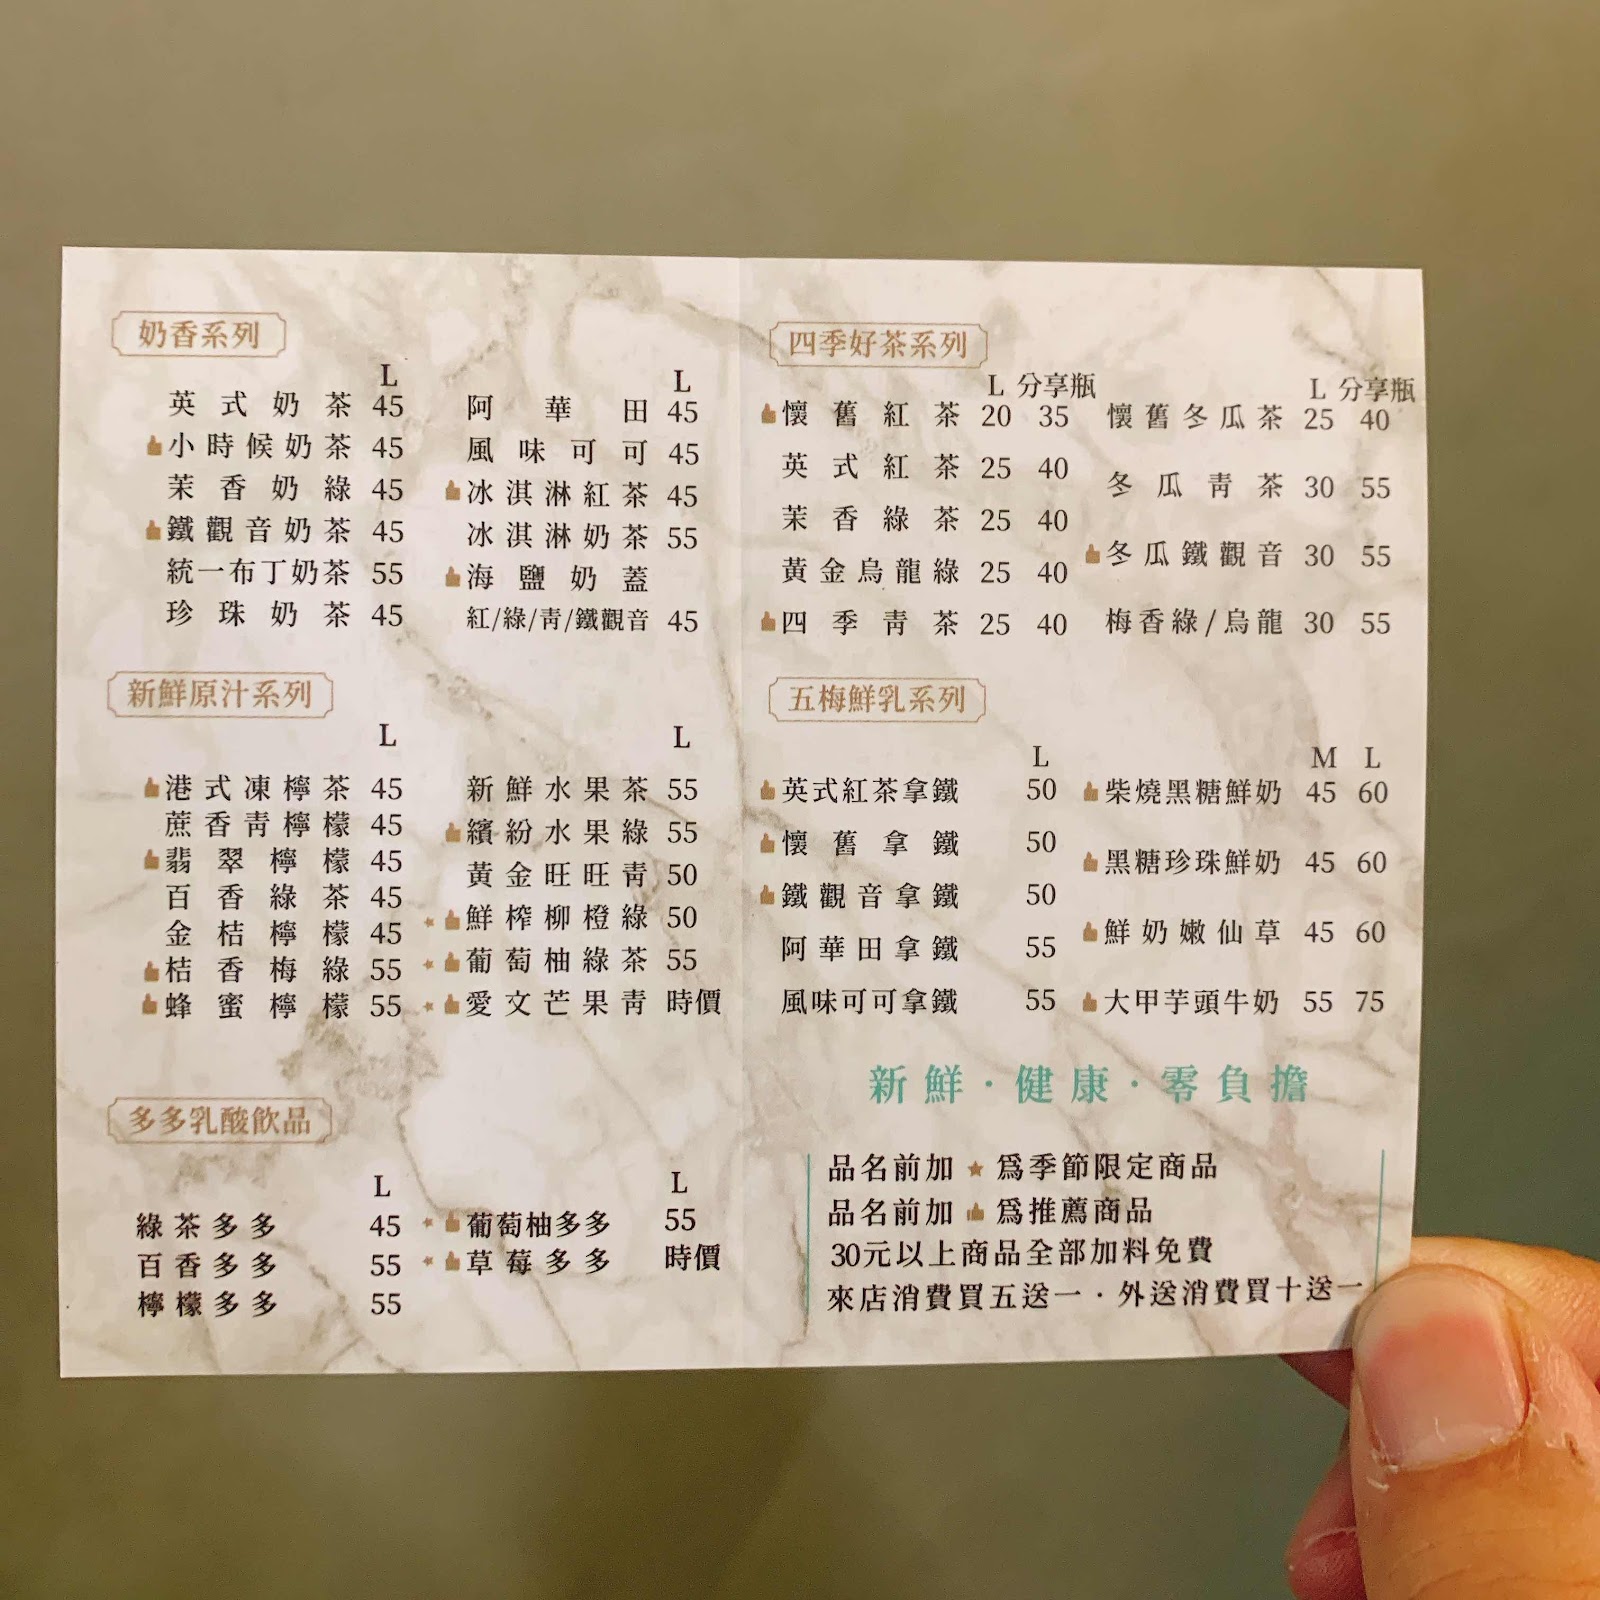 奶香系列
L
英式奶茶 45
小時候奶茶 45
茉香奶綠 45
鐵觀音奶茶 45
統一布丁奶茶 55
珍珠奶茶 45
L
阿華田 45
風味可可 45
冰淇淋紅茶 45
冰淇淋奶茶 55
海鹽奶蓋
紅/綠/靑/鐵觀音 45
新鮮原汁系列
L
港式凍檸茶 45
蔗香靑檸檬 45
翡翠檸檬 45
百香綠茶 45
金桔檸檬 45
桔香梅綠 55
蜂蜜檸檬 55
L
新鮮水果茶 55
繽紛水果綠 55
黃金旺旺靑 50
鮮榨柳橙綠 50
葡萄柚綠茶 55
愛文芒果靑 時價
多多乳酸飲品
L
綠茶多多 45
百香多多 55
檸檬多多 55
L
葡萄柚多多 55
草莓多多 時價
四季好茶系列
L 分享瓶
懷舊紅茶 20 35
英式紅茶 25 40
茉香綠茶 25 40
黃金烏龍綠 25 40
四季靑茶 25 40
L 分享瓶
懷舊冬瓜茶 25 40
冬瓜靑茶 30 55
冬瓜鐵觀音 30 55
梅香綠/烏龍 30 55
五梅鮮乳系列
L
英式紅茶拿鐵 50
懷舊拿鐵 50
鐵觀音拿鐵 50
阿華田拿鐵 55
風味可可拿鐵 55
M L
柴燒黑糖鮮奶 45 60
黑糖珍珠鮮奶 45 60
鮮奶嫩仙草 45 60
大甲芋頭牛奶 55 75
新鮮·健康·零負擔
品名前加 ★ 爲季節限定商品
品名前加 👍 爲推薦商品
30元以上商品全部加料免費
來店消費買五送一·外送消費買十送一